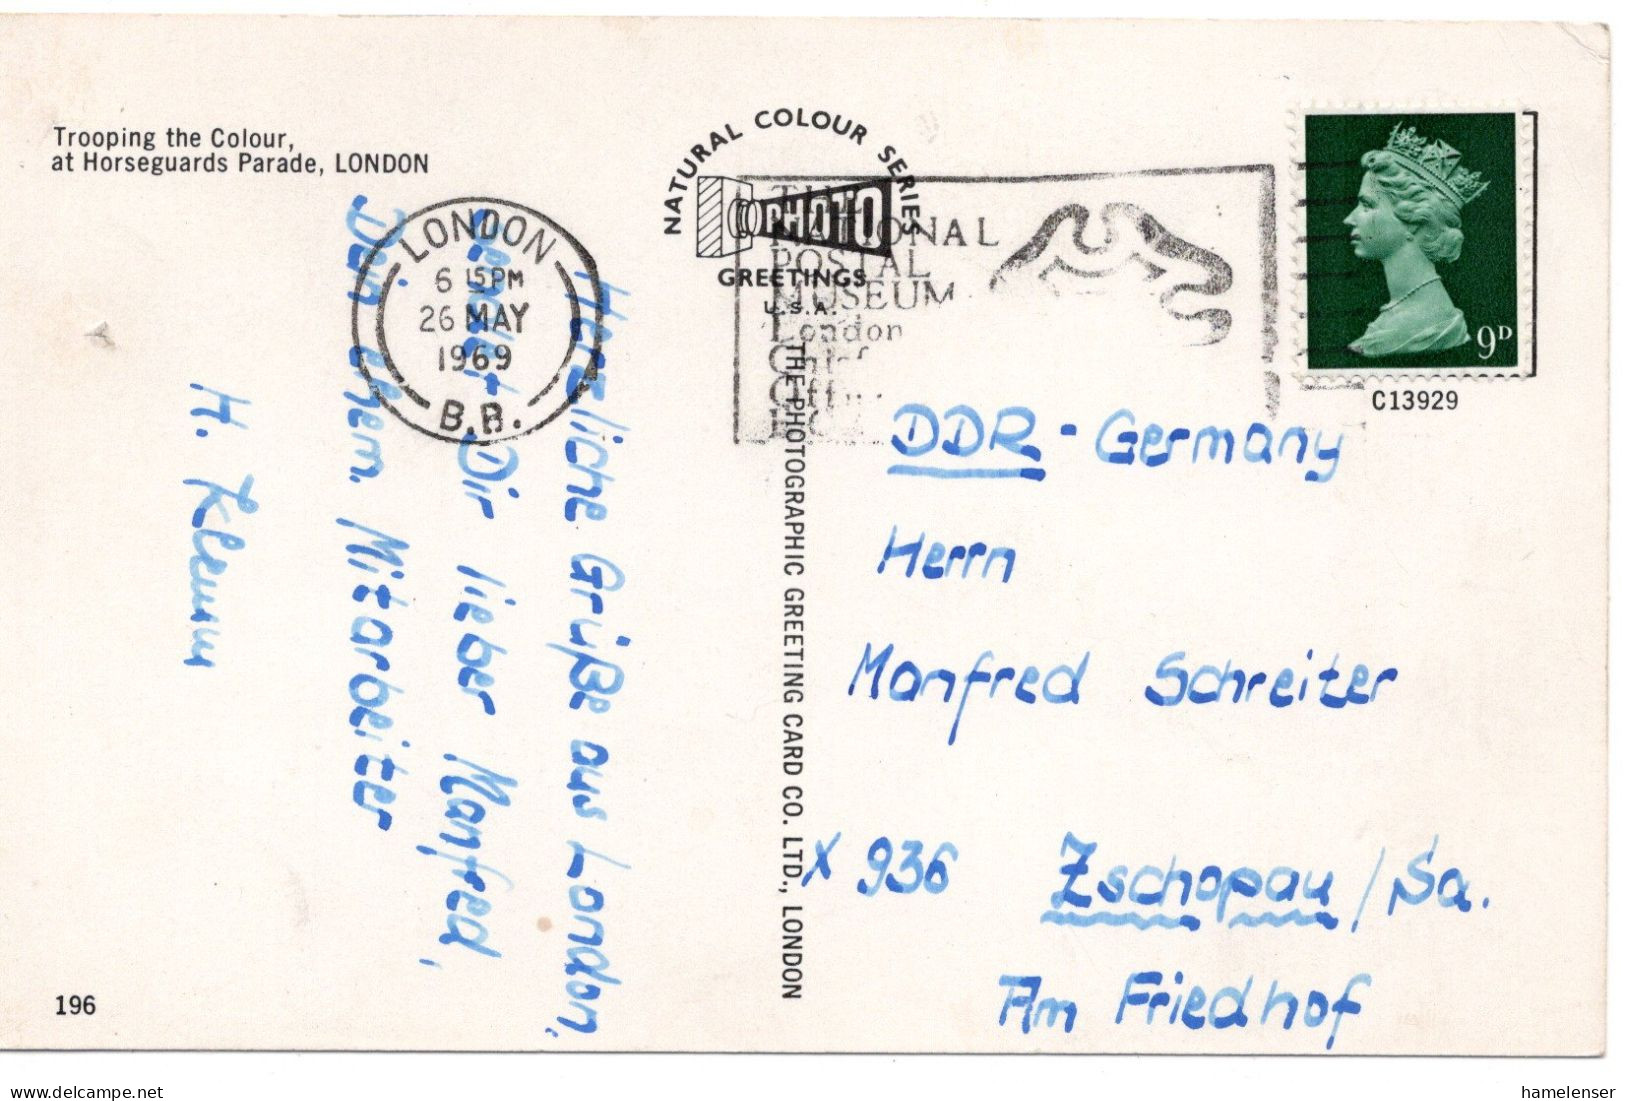 Trooping the Colour,
at Horseguards Parade, LONDON
LONDON
6 15 PM
26 MAY
1969
B.B.
NATURAL COLOUR SERIES
PHOTO
GREETINGS
U.S.A.
THE
NATIONAL
POSTAL
MUSEUM
London
Chief
9D
C13929
Herzliche Grüße aus London,
sendet Dir lieber Manfred,
Dein ehem. Mitarbeiter
H. Klemm
THE PHOTOGRAPHIC GREETING CARD CO. LTD., LONDON
DDR - Germany
Herrn
Manfred Schreiter
X 936 Zschopau / Sa.
Am Friedhof
196
hamelenser
www.delcampe.net